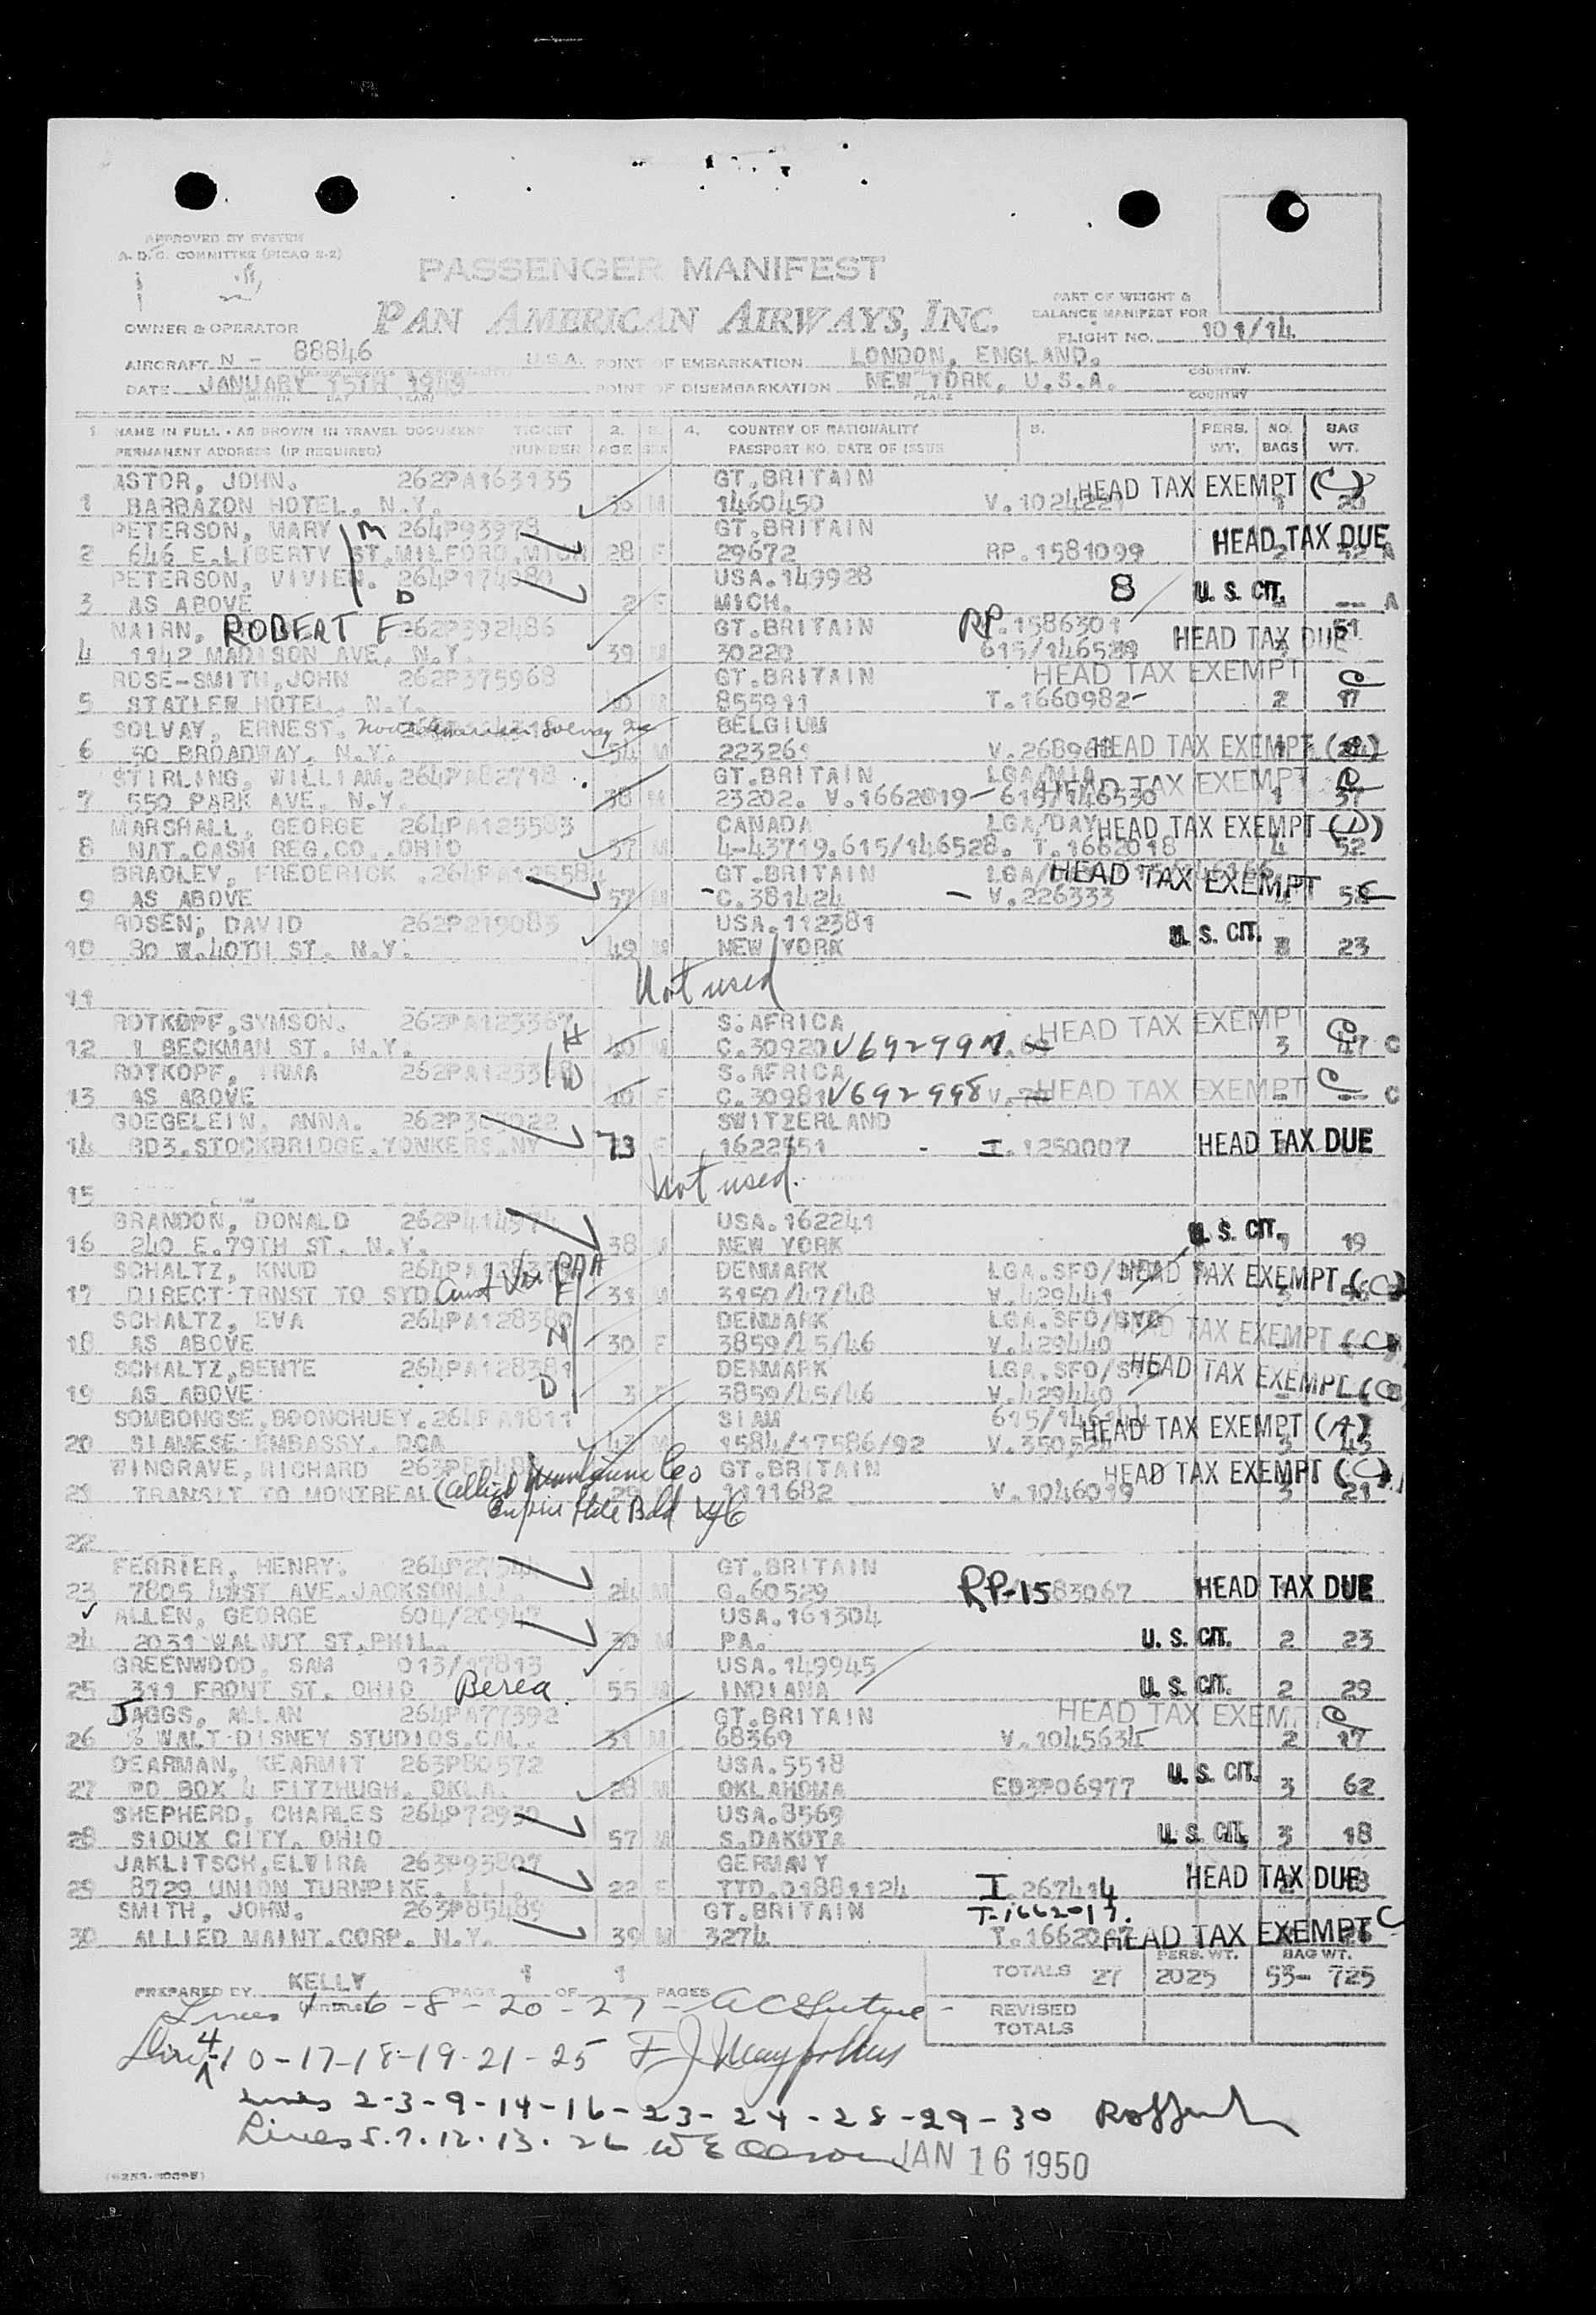 APPROVED BY SYSTEM
A. D. C. COMMITTEE (PICAO 2-2)
PASSENGER MANIFEST
PAN AMERICAN AIRWAYS, INC.
PART OF WEIGHT &
BALANCE MANIFEST FOR
OWNER & OPERATOR
FLIGHT NO. 101/14
AIRCRAFT N - 88846 U.S.A. POINT OF EMBARKATION LONDON, ENGLAND. COUNTRY
DATE JANUARY 15TH 1949 POINT OF DISEMBARKATION NEW YORK, U.S.A.
MONTH DAY YEAR PLACE COUNTRY
1. NAME IN FULL - AS SHOWN IN TRAVEL DOCUMENT TICKET 2. 3. 4. COUNTRY OF NATIONALITY 5. PERS. NO. BAG
PERMANENT ADDRESS (IF REQUIRED) NUMBER AGE SEX PASSPORT NO. DATE OF ISSUE WT. BAGS WT.
ASTOR, JOHN. 262PA163135 GT.BRITAIN HEAD TAX EXEMPT (C)
1 BARBAZON HOTEL, N.Y. M 1460450 V.1024221
PETERSON, MARY M 264P93978 GT.BRITAIN HEAD TAX DUE
2 646 E.LIBERTY ST.MILFORD.MICH 28 F 29672 RP.1581099 2 A
PETERSON, VIVIEN. 264P174080 USA.149928 8 U. S. CIT.
3 AS ABOVE D 2 F MICH. -- A
NAIRN, ROBERT F 262P392486 GT.BRITAIN RP.1586301 51
4 1142 MADISON AVE, N.Y. 39 M 30220 615/146529 HEAD TAX DUE
ROSE-SMITH,JOHN 262P375968 GT.BRITAIN HEAD TAX EXEMPT C
5 STATLER HOTEL, N.Y. M 855911 T.1660982- 2 17
SOLVAY, ERNEST. BELGIUM
6 50 BROADWAY, N.Y. 54 M 223261 HEAD TAX EXEMPT
STIRLING, WILLIAM. 264PA82718 GT.BRITAIN LGA/MIA HEAD TAX EXEMPT
7 550 PARK AVE. N.Y. 38 M 23202. V.1662019- 615/146530 1 37
MARSHALL, GEORGE 264PA125583 CANADA LGA/DAY HEAD TAX EXEMPT (D)
8 NAT.CASH REG.CO..OHIO 37 M 4-43719.615/146528. T.1662018 4 52
BRADLEY, FREDERICK .264PA125584 GT.BRITAIN HEAD TAX EXEMPT C
9 AS ABOVE 57 M -C.381424 - V.226333
ROSEN, DAVID 262P219083 USA.112381 U. S. CIT.
10 80 W.40TH ST. N.Y. 49 M NEW YORK 23
11 Not used
ROTKOPF,SYMSON. 262PA123367 H S.AFRICA HEAD TAX EXEMPT C
12 1 BECKMAN ST. N.Y. 40 M C.30920 V692997 3 47 C
ROTKOPF, IRMA 262PA123368 W S.AFRICA HEAD TAX EXEMPT C
13 AS ABOVE 40 F C.30981 V692998 -- C
GOEGELEIN, ANNA. SWITZERLAND
14 803.STOCKBRIDGE.YONKERS.NY 73 F 1622551 - I.1250007 HEAD TAX DUE
15 Not used.
BRANDON, DONALD USA.162241 U. S. CIT.
16 240 E.79TH ST. N.Y. 38 M NEW YORK 1 19
SCHALTZ, KNUD PAA DENMARK LGA.SFO/SYD HEAD TAX EXEMPT (C)
17 DIRECT TRNST TO SYD F 31 M 3150/47/48 V.429441
SCHALTZ, EVA 264PA128380 DENMARK LGA.SFO/SYD HEAD TAX EXEMPT (C)
18 AS ABOVE M 30 F 3859/45/46 V.429440
SCHALTZ,BENTE 264PA128381 DENMARK LGA.SFO/SYD HEAD TAX EXEMPT (C)
19 AS ABOVE D 3 F 3859/45/46 V.429440
SOMBONGSE,BOONCHUEY.264PA1811 SIAM HEAD TAX EXEMPT (A)
20 SIAMESE EMBASSY. DCA 43 M 1584/17586/92 3 43
WINGRAVE,RICHARD GT.BRITAIN HEAD TAX EXEMPT (C)
21 TRANSIT TO MONTREAL (Allied 29 1111682 V.1046019 3 21
22
FERRIER, HENRY. GT.BRITAIN
23 7805 41ST AVE.JACKSON.L.I. 24 M G.60529 RP-1583067 HEAD TAX DUE
ALLEN, GEORGE USA.161304
24 2031 WALNUT ST.PHIL. 30 M PA. U. S. CIT. 2 23
GREENWOOD, SAM 013/17813 USA.149945
25 311 FRONT ST. OHIO Berea. 55 M INDIANA U. S. CIT. 2 29
JAGGS, ALLAN 264PA77392 GT.BRITAIN HEAD TAX EXEMPT C
26 % WALT DISNEY STUDIOS.CAL. 31 M 68369 V.1045634 2 17
DEARMAN, KEARMIT 263P80572 USA.5518 U. S. CIT.
27 PO BOX 4 FITZHUGH, OKLA. 28 M OKLAHOMA ED3P06977 3 62
SHEPHERD, CHARLES 264P72930 USA.8569
28 SIOUX CITY, OHIO 57 M S.DAKOTA U. S. CIT. 3 18
JAKLITSCH,ELVIRA 263P93807 GERMANY HEAD TAX DUE
29 8729 UNION TURNPIKE. L.I. 22 F TTD.01881124 I.267414
SMITH, JOHN. 263P85489 GT.BRITAIN T-1662017.
30 ALLIED MAINT.CORP. N.Y. 39 M 3274 HEAD TAX EXEMPT C
PREPARED BY KELLY PAGE 1 OF 1 PAGES TOTALS 27 PERS. WT. 2025 BAG WT. 53- 725
REVISED TOTALS
Lines 1-6-8-20-27-
Lines 4-10-17-18-19-21-25
Lines 2-3-9-14-16-23-24-28-29-30
Lines 5.7.12.13.26
JAN 16 1950